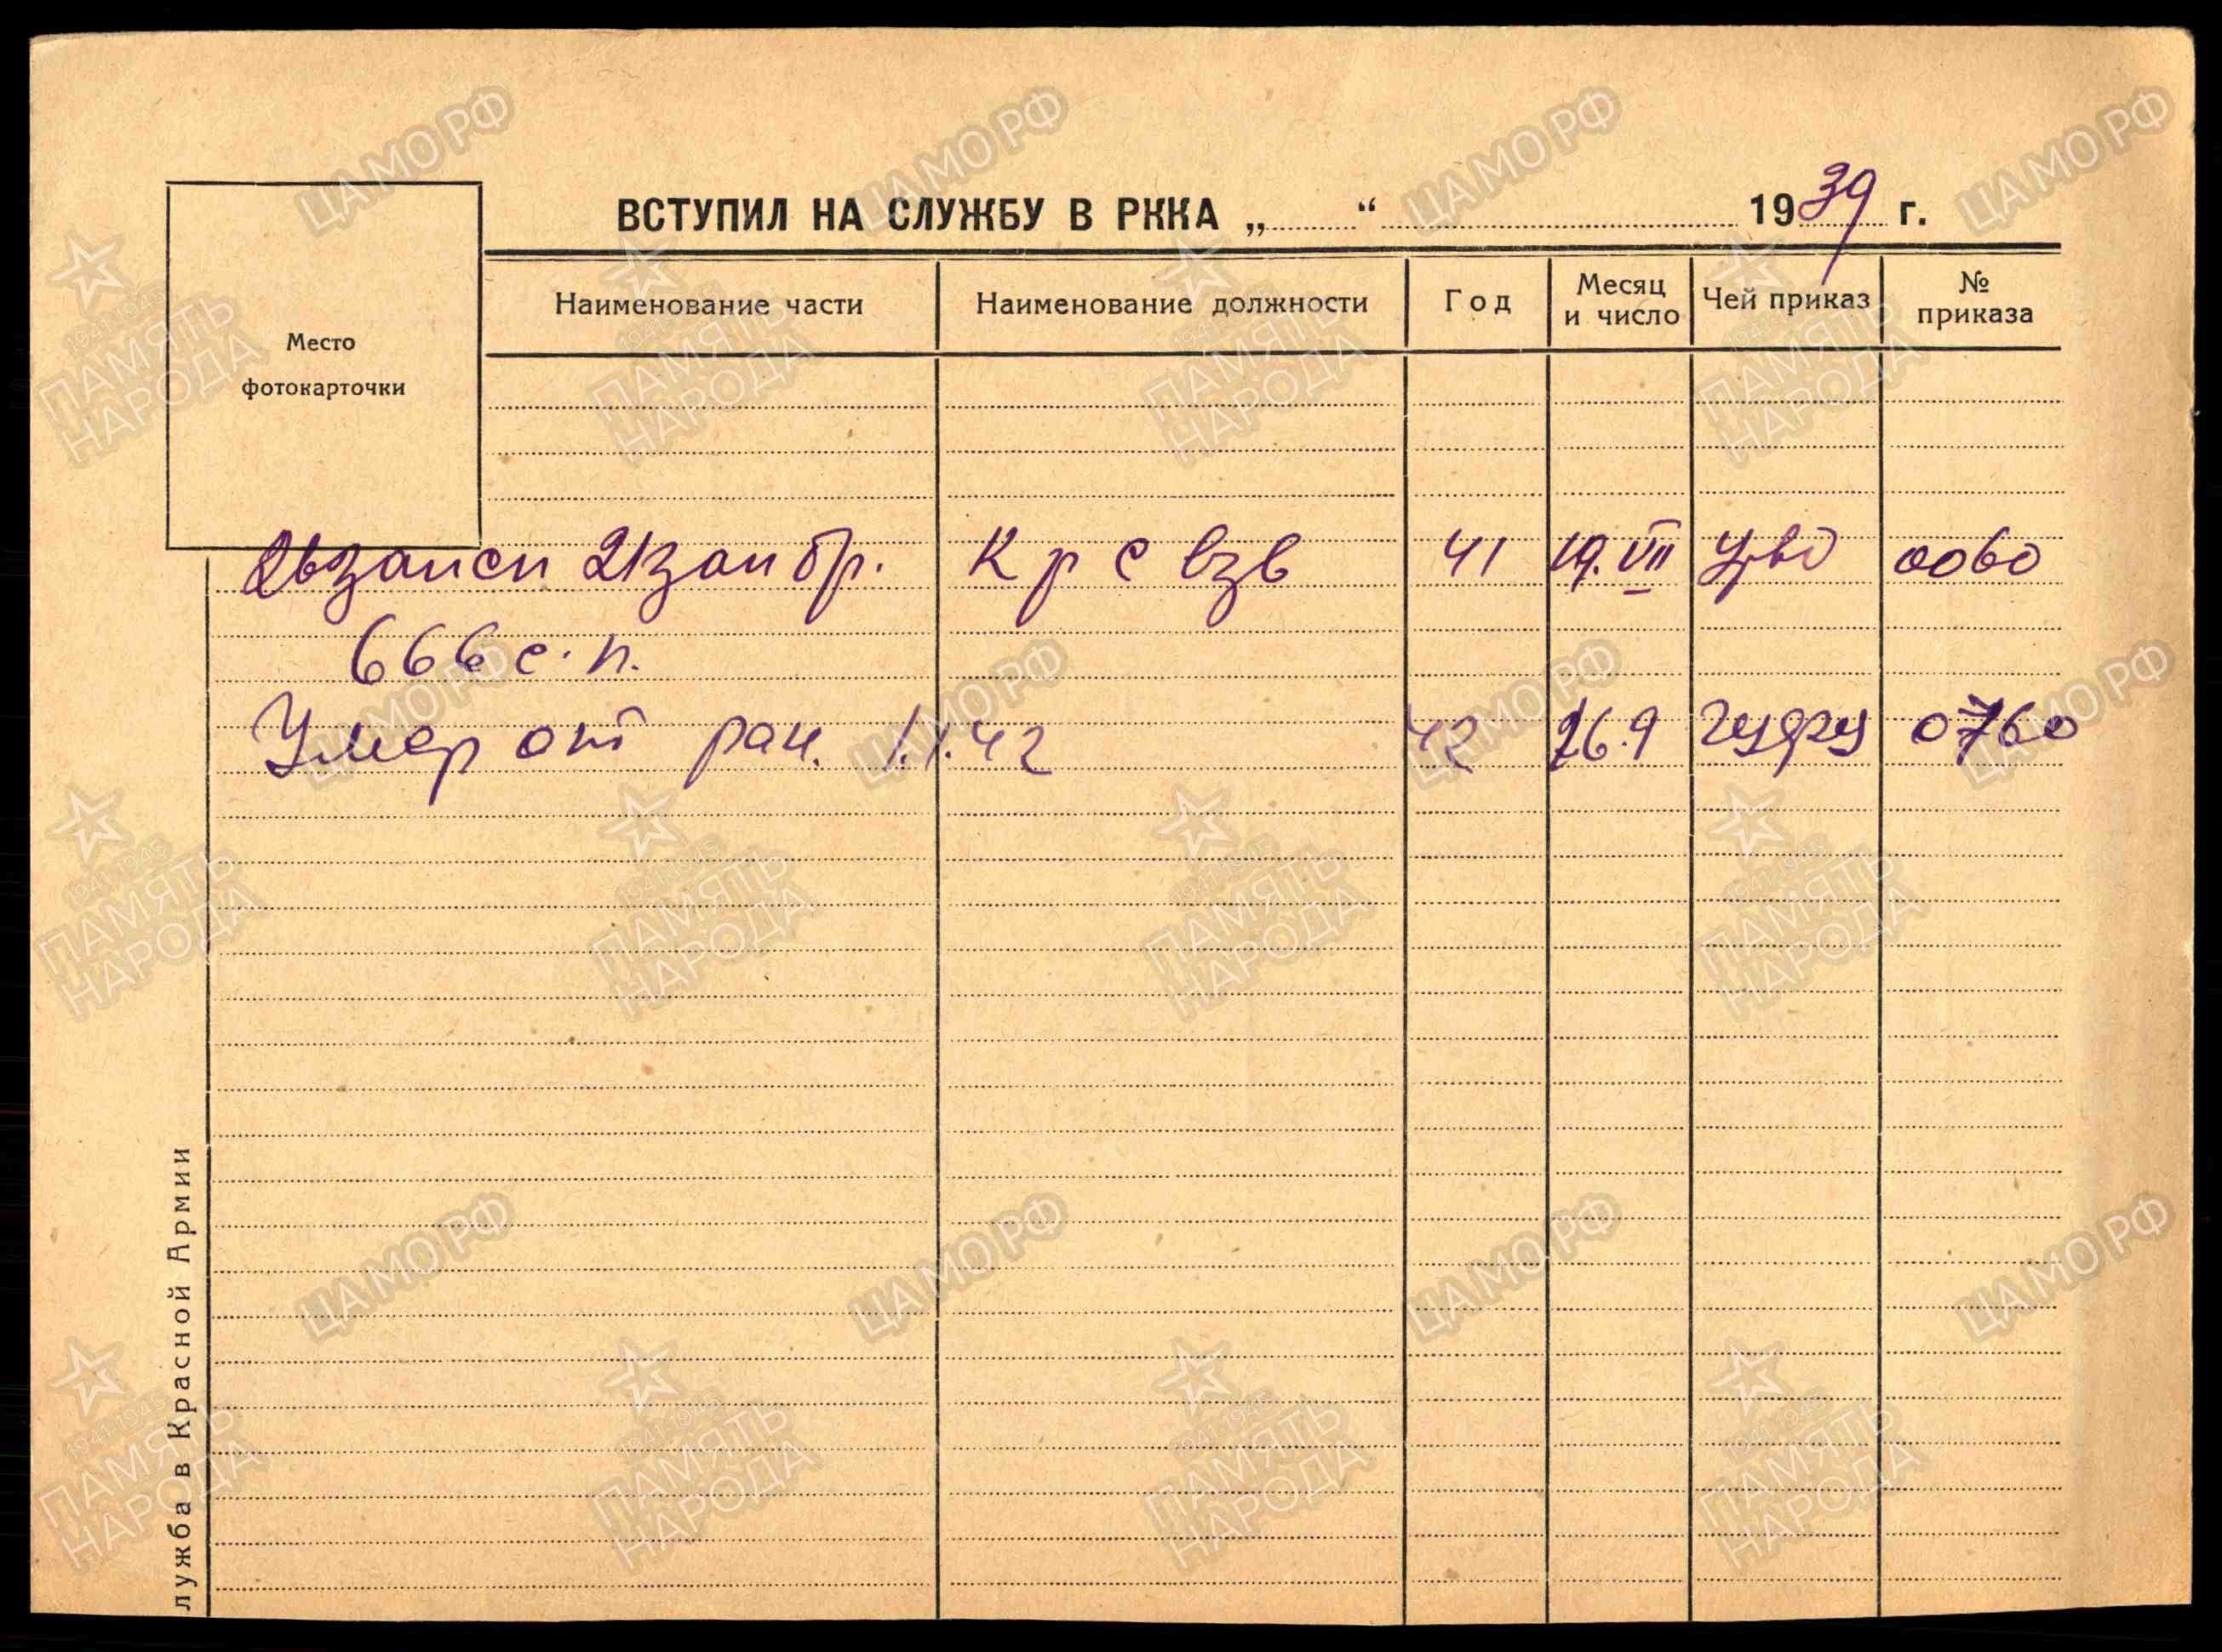 ВСТУПИЛ НА СЛУЖБУ В РККА „ “ 1939 г.
Место
фотокарточки
Наименование части Наименование должности Год Месяц и число Чей приказ № приказа
запсп 21 зап бр. К р с взв 41 19.VII 0060
666 с. п.
Умер от ран. 1.1.42 42 26.9 гуфу 0760
лужба в Красной Армии
ЦАМО РФ
1941-1945
ПАМЯТЬ
НАРОДА